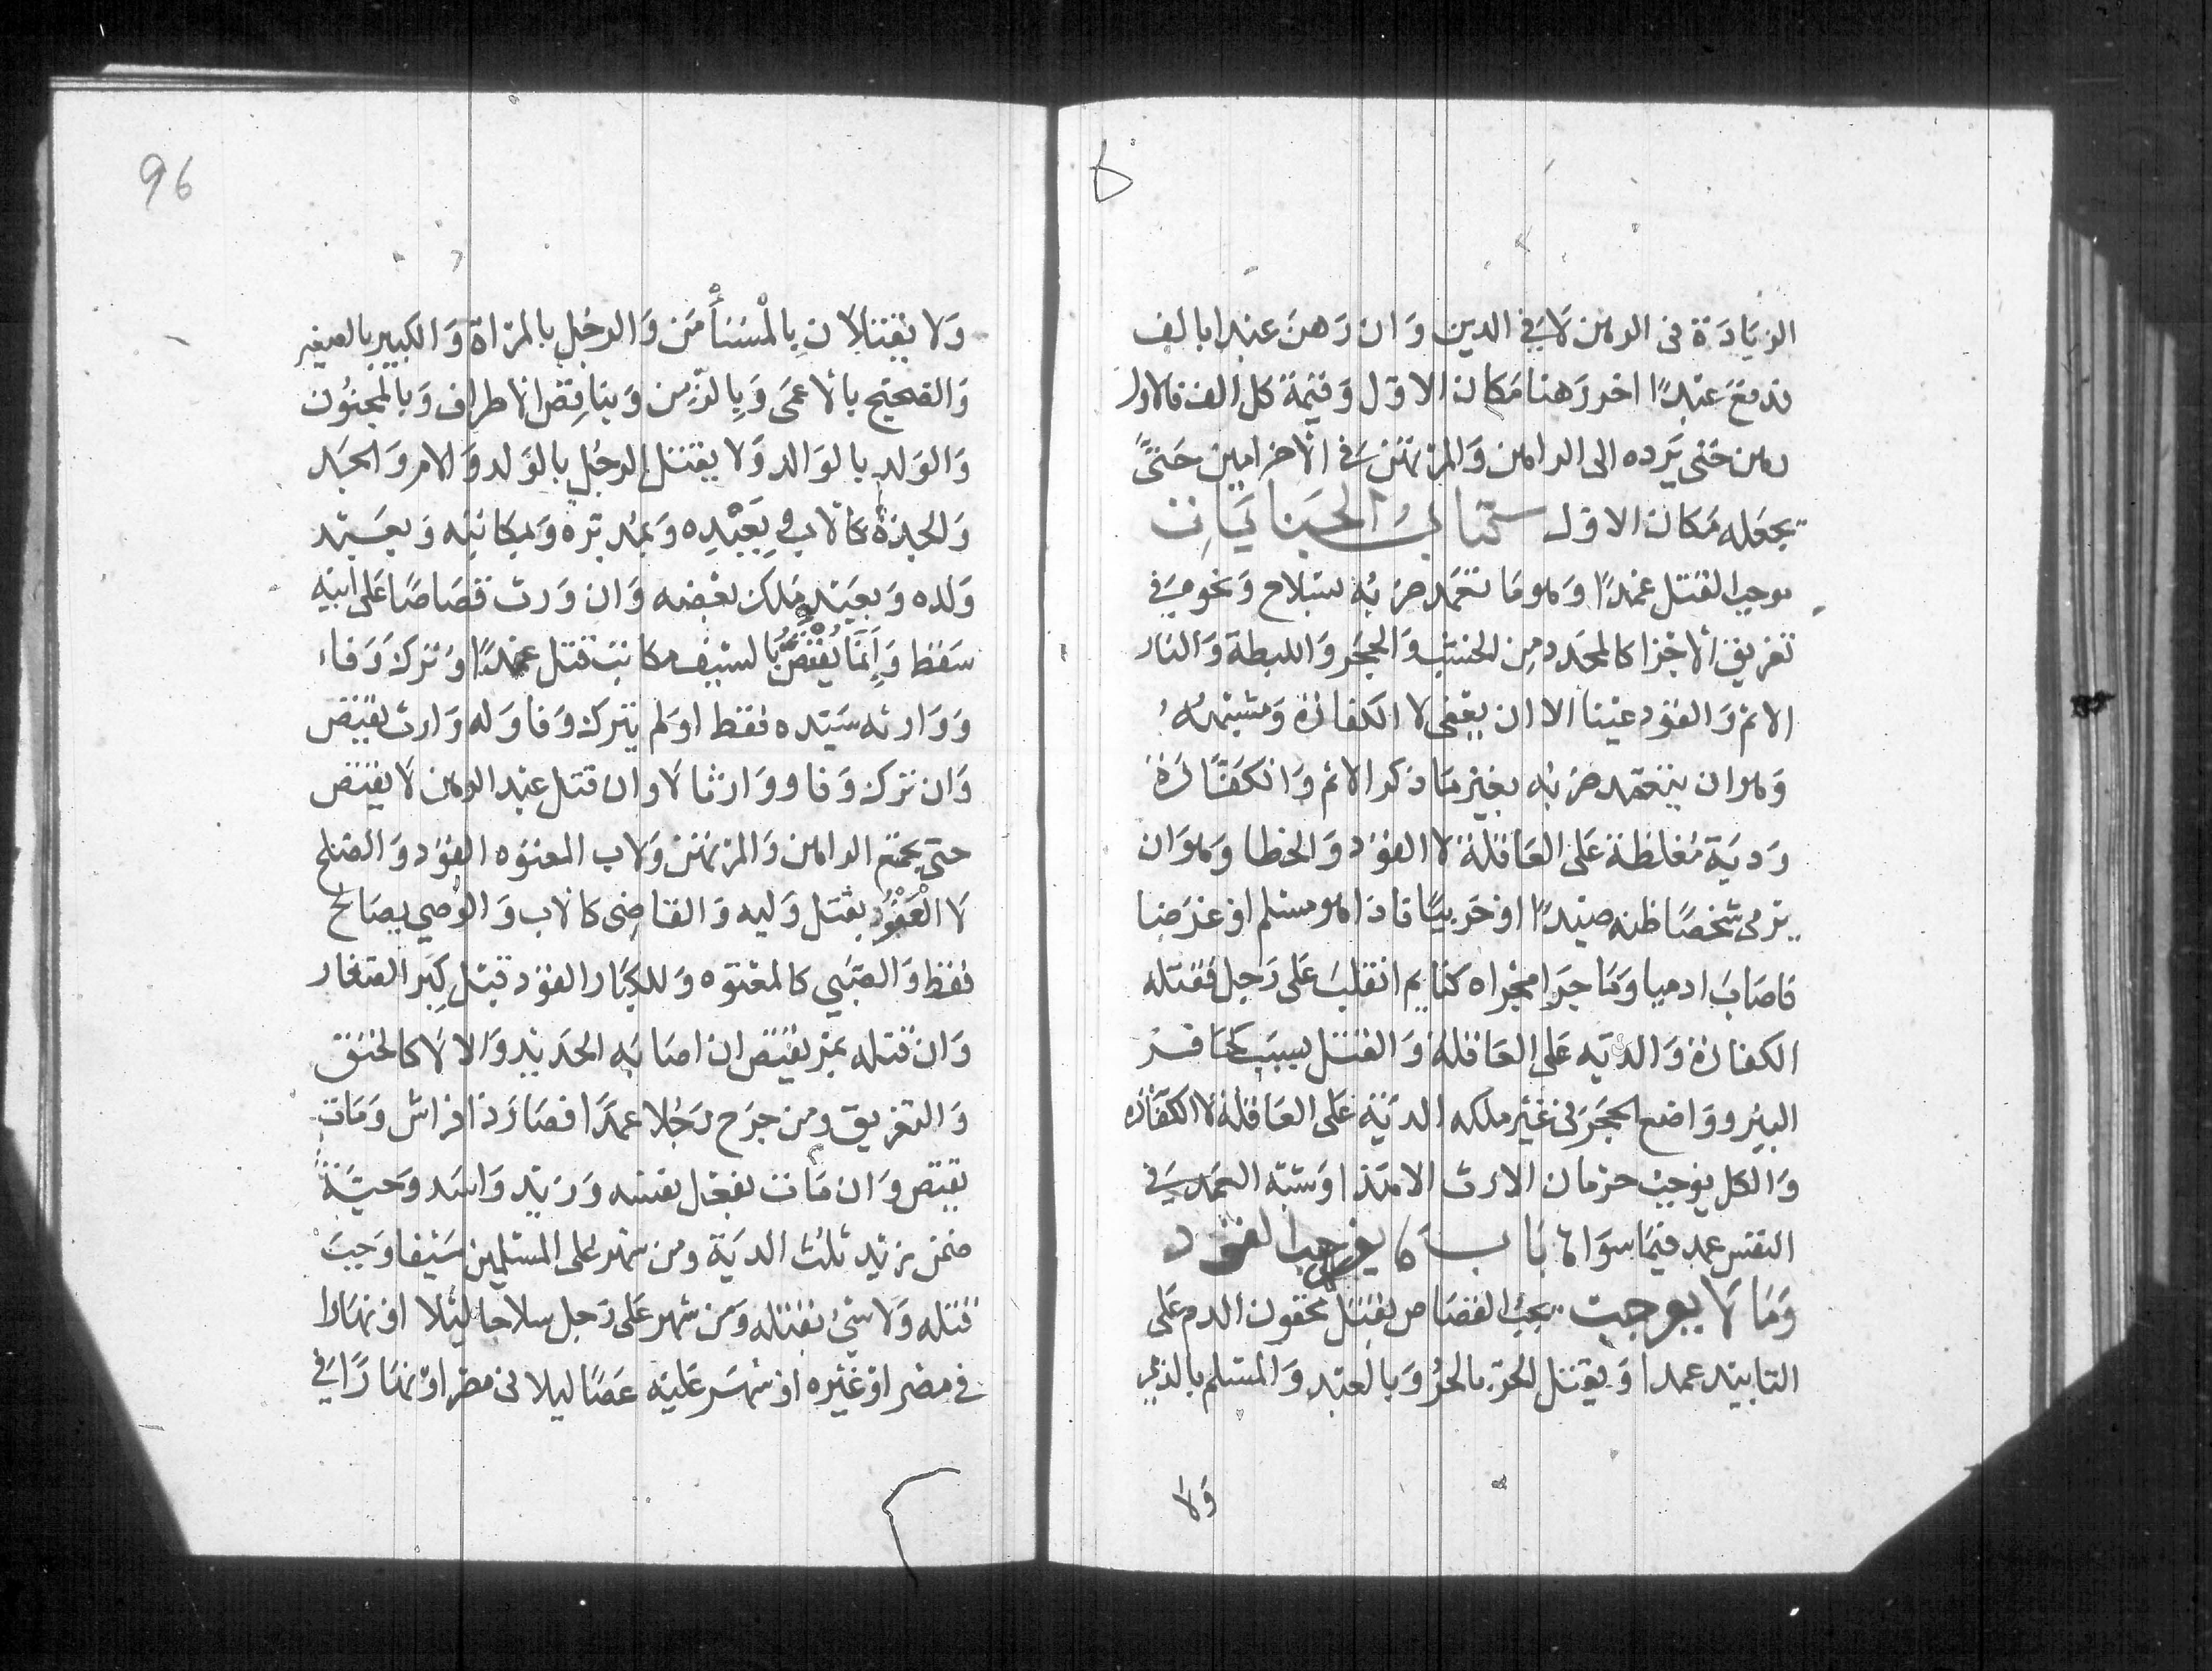 الزيادة فى الرهن لا في الدين وان رهن عبدا بالف
فدفع عبدا اخر رهنا مكان الاول وقيمة كل الف فالاول
رهن حتى يرده الى الراهن والمرتهن في الاخر امين حتى
يجعله مكان الاول كتاب الجنايات
موجب القتل عمدا وهو ما تعمد ضربه بسلاح ونحوه في
تفريق الاجزا كالمحدد من الخشب والحجر والليطة والنار
الاثم والقود عينا الا ان يعفى لا الكفارة وشبهه
وهو ان يتعمد ضربه بغير ما ذكر الاثم والكفارة
ودية مغلظة على العاقلة لا القود والخطا وهو ان
يرمى شخصا ظنه صيدا او حربيا فاذا هو مسلم او غرضا
فاصاب ادميا وما جرا مجراه كنايم انقلب على رجل فقتله
الكفارة والدية على العاقلة والقتل بسبب كحافر
البير وواضع الحجر فى غير ملكه الدية على العاقلة لا الكفارة
والكل يوجب حرمان الارث الا هذا وشبه العمد في
النفس عمد فيما سواها باب ما يوجب القود
وما لا يوجب يجب القصاص بقتل محقون الدم على
التابيد عمدا ويقتل الحر بالحر وبالعبد والمسلم بالذمي
ولا
96
ولا يقتلان بالمستأمن والرجل بالمراة والكبير بالصغير
والصحيح بالاعمى وبالزمن وبناقص الاطراف وبالمجنون
والولد بالوالد ولا يقتل الرجل بالولد والام والجد
والجدة كالاب وبعبده وبمدبره وبمكاتبه وبعبد
ولده وبعبد ملك بعضه وان ورث قصاصا على ابيه
سقط وإنما يقتص بالسيف مكاتب قتل عمدا وترك وفاء
ووارثه سيده فقط او لم يترك وفا وله وارث يقتص
وان ترك وفا ووارثا لا وان قتل عبد الرهن لا يقتص
حتى يجتمع الراهن والمرتهن ولاب المعتوه القود والصلح
لا العفو بقتل وليه والقاضى كالاب والوصي يصالح
فقط والصبي كالمعتوه وللكبار القود قبل كبر الصغار
وان قتله بمر يقتص ان اصابه الحديد والا لا كالخنق
والتغريق ومن جرح رجلا عمدا فصار ذا فراش ومات
يقتص وان مات بفعل نفسه وزيد واسد وحية
ضمن زيد ثلث الدية ومن شهر على المسلمين سيفا وجب
قتله ولا شئ بقتله ومن شهر على رجل سلاحا ليلا او نهارا
في مصر او غيره او شهر عليه عصا ليلا فى مصر او نهارا في